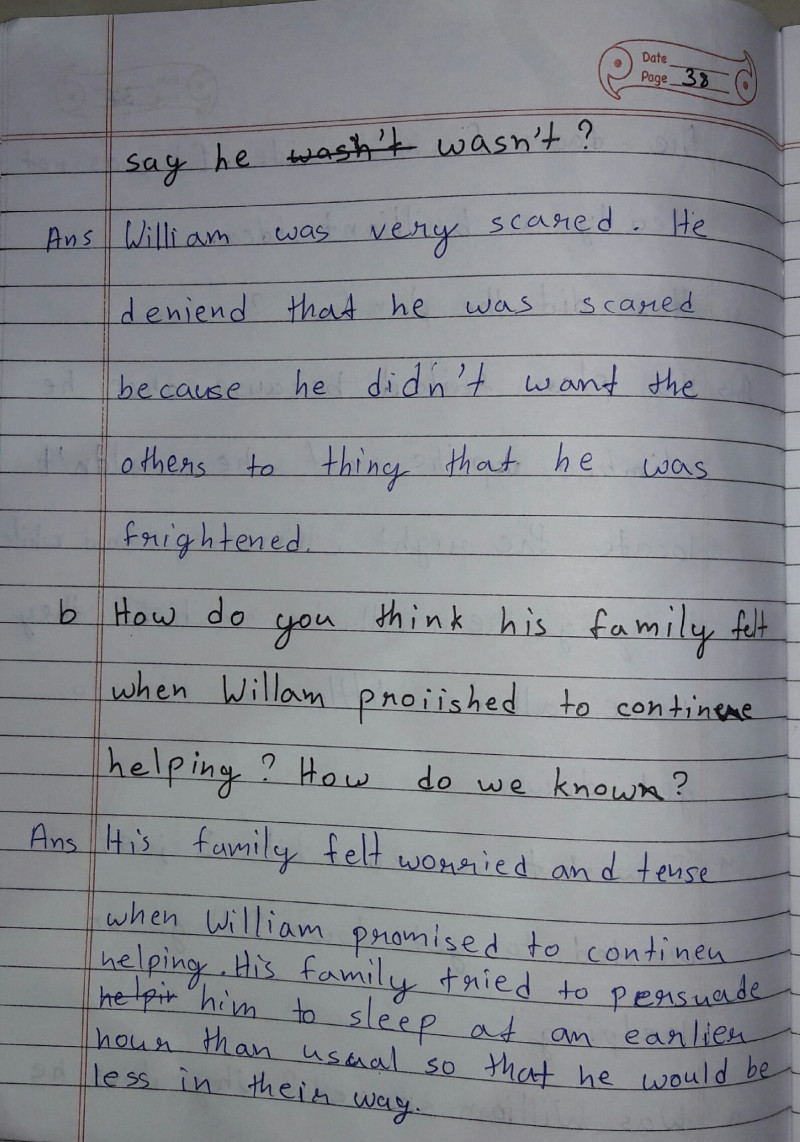 Date
Page 38
say he wash't wasn't?
Ans William was very scared. He
deniend that he was scared
because he didn't want the
others to thing that he was
frightened.
b How do you think his family felt
when Willam proiished to continue
helping? How do we known?
Ans His family felt worried and tense
when William promised to contineu
helping. His family tried to persuade
helpir him to sleep at an earlier
hour than usual so that he would be
less in their way.